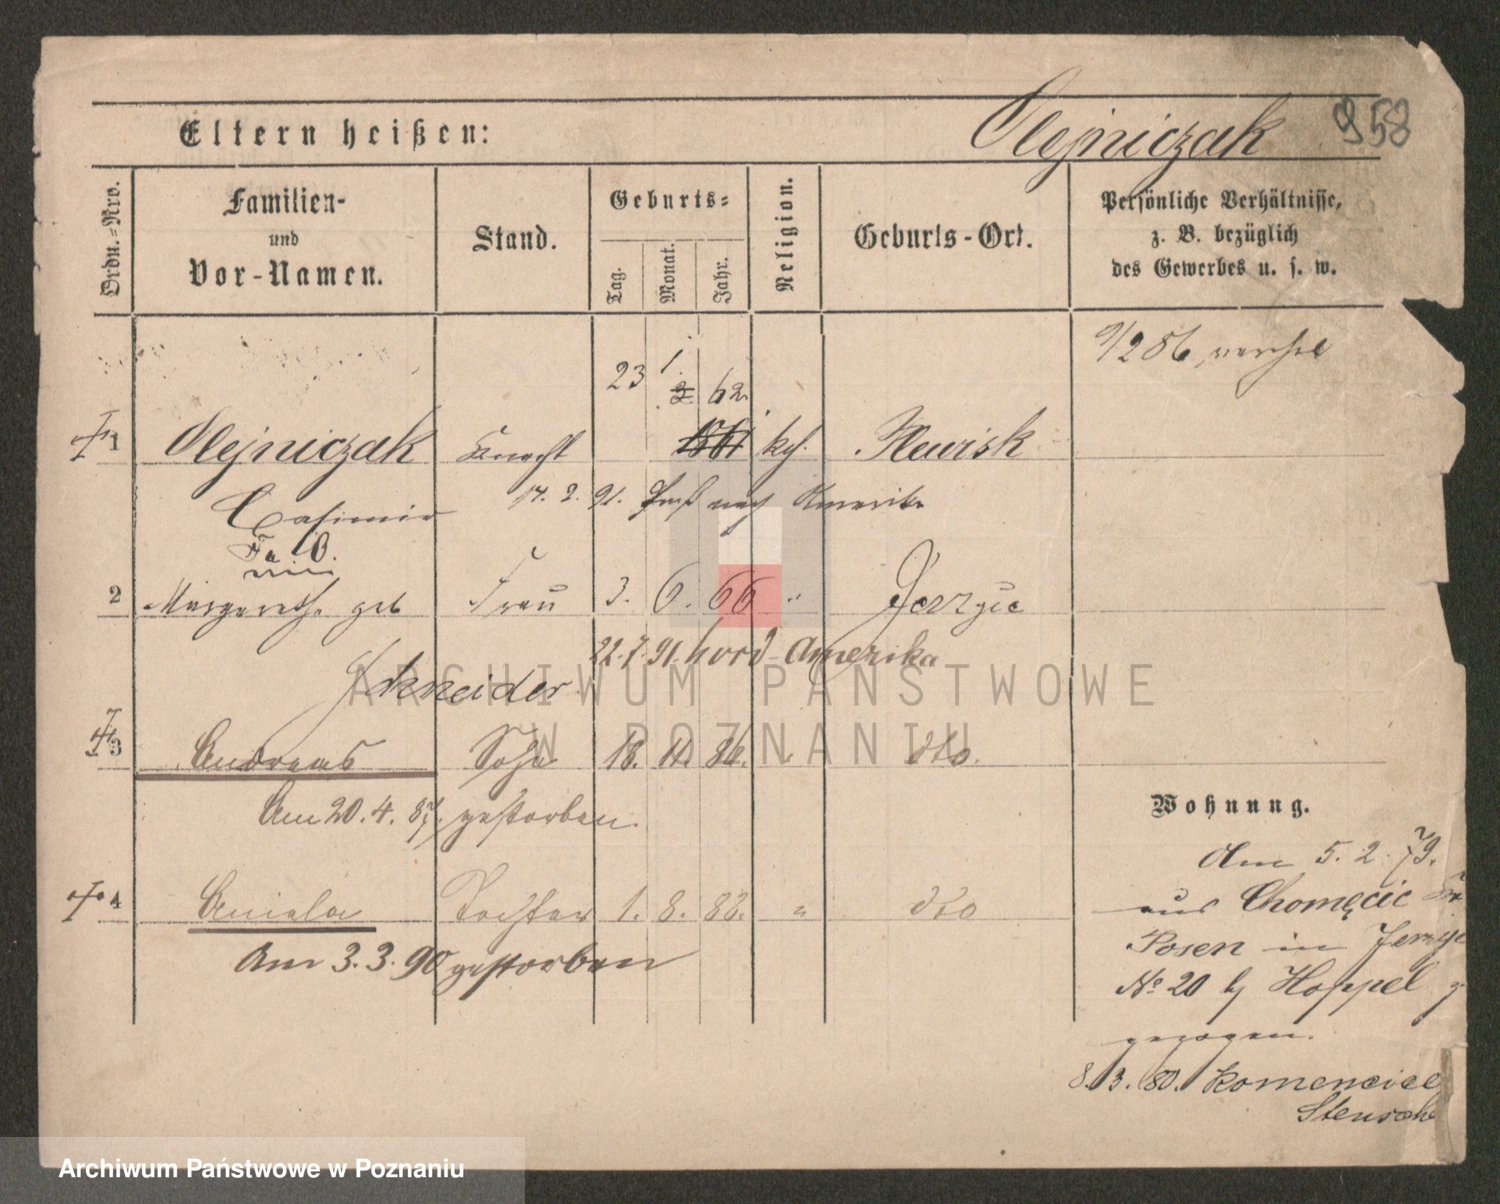 Olejniczak 958
Eltern heißen:
Ordn.-Nro.
Familien-
und
Vor-Namen.
Stand.
Geburts-
Tag.
Monat.
Jahr.
Religion.
Geburts-Ort.
Persönliche Verhältnisse,
z. B. bezüglich
des Gewerbes u. s. w.
9/2 86
23 1. 62.
1 Olejniczak Knecht kth.
Casimir 17. 2. 91. nach Amerika
2 Margareth geb Frau 3. 6. 66 "
22.7.91. Nord-Amerika
Schneider
3 Andreas Sohn 18. 11. 86. " dto.
Am 20.4.87. gestorben.
4 Aniela Tochter 1. 8. 88. " dto
Am 3.3.90 gestorben
Wohnung.
Am 5. 2. 79.
aus Chomęcic
Posen in
No 20 Hoppel
gezogen.
8. 3. 80.
ARCHIWUM PAŃSTWOWE
W POZNANIU
Archiwum Państwowe w Poznaniu